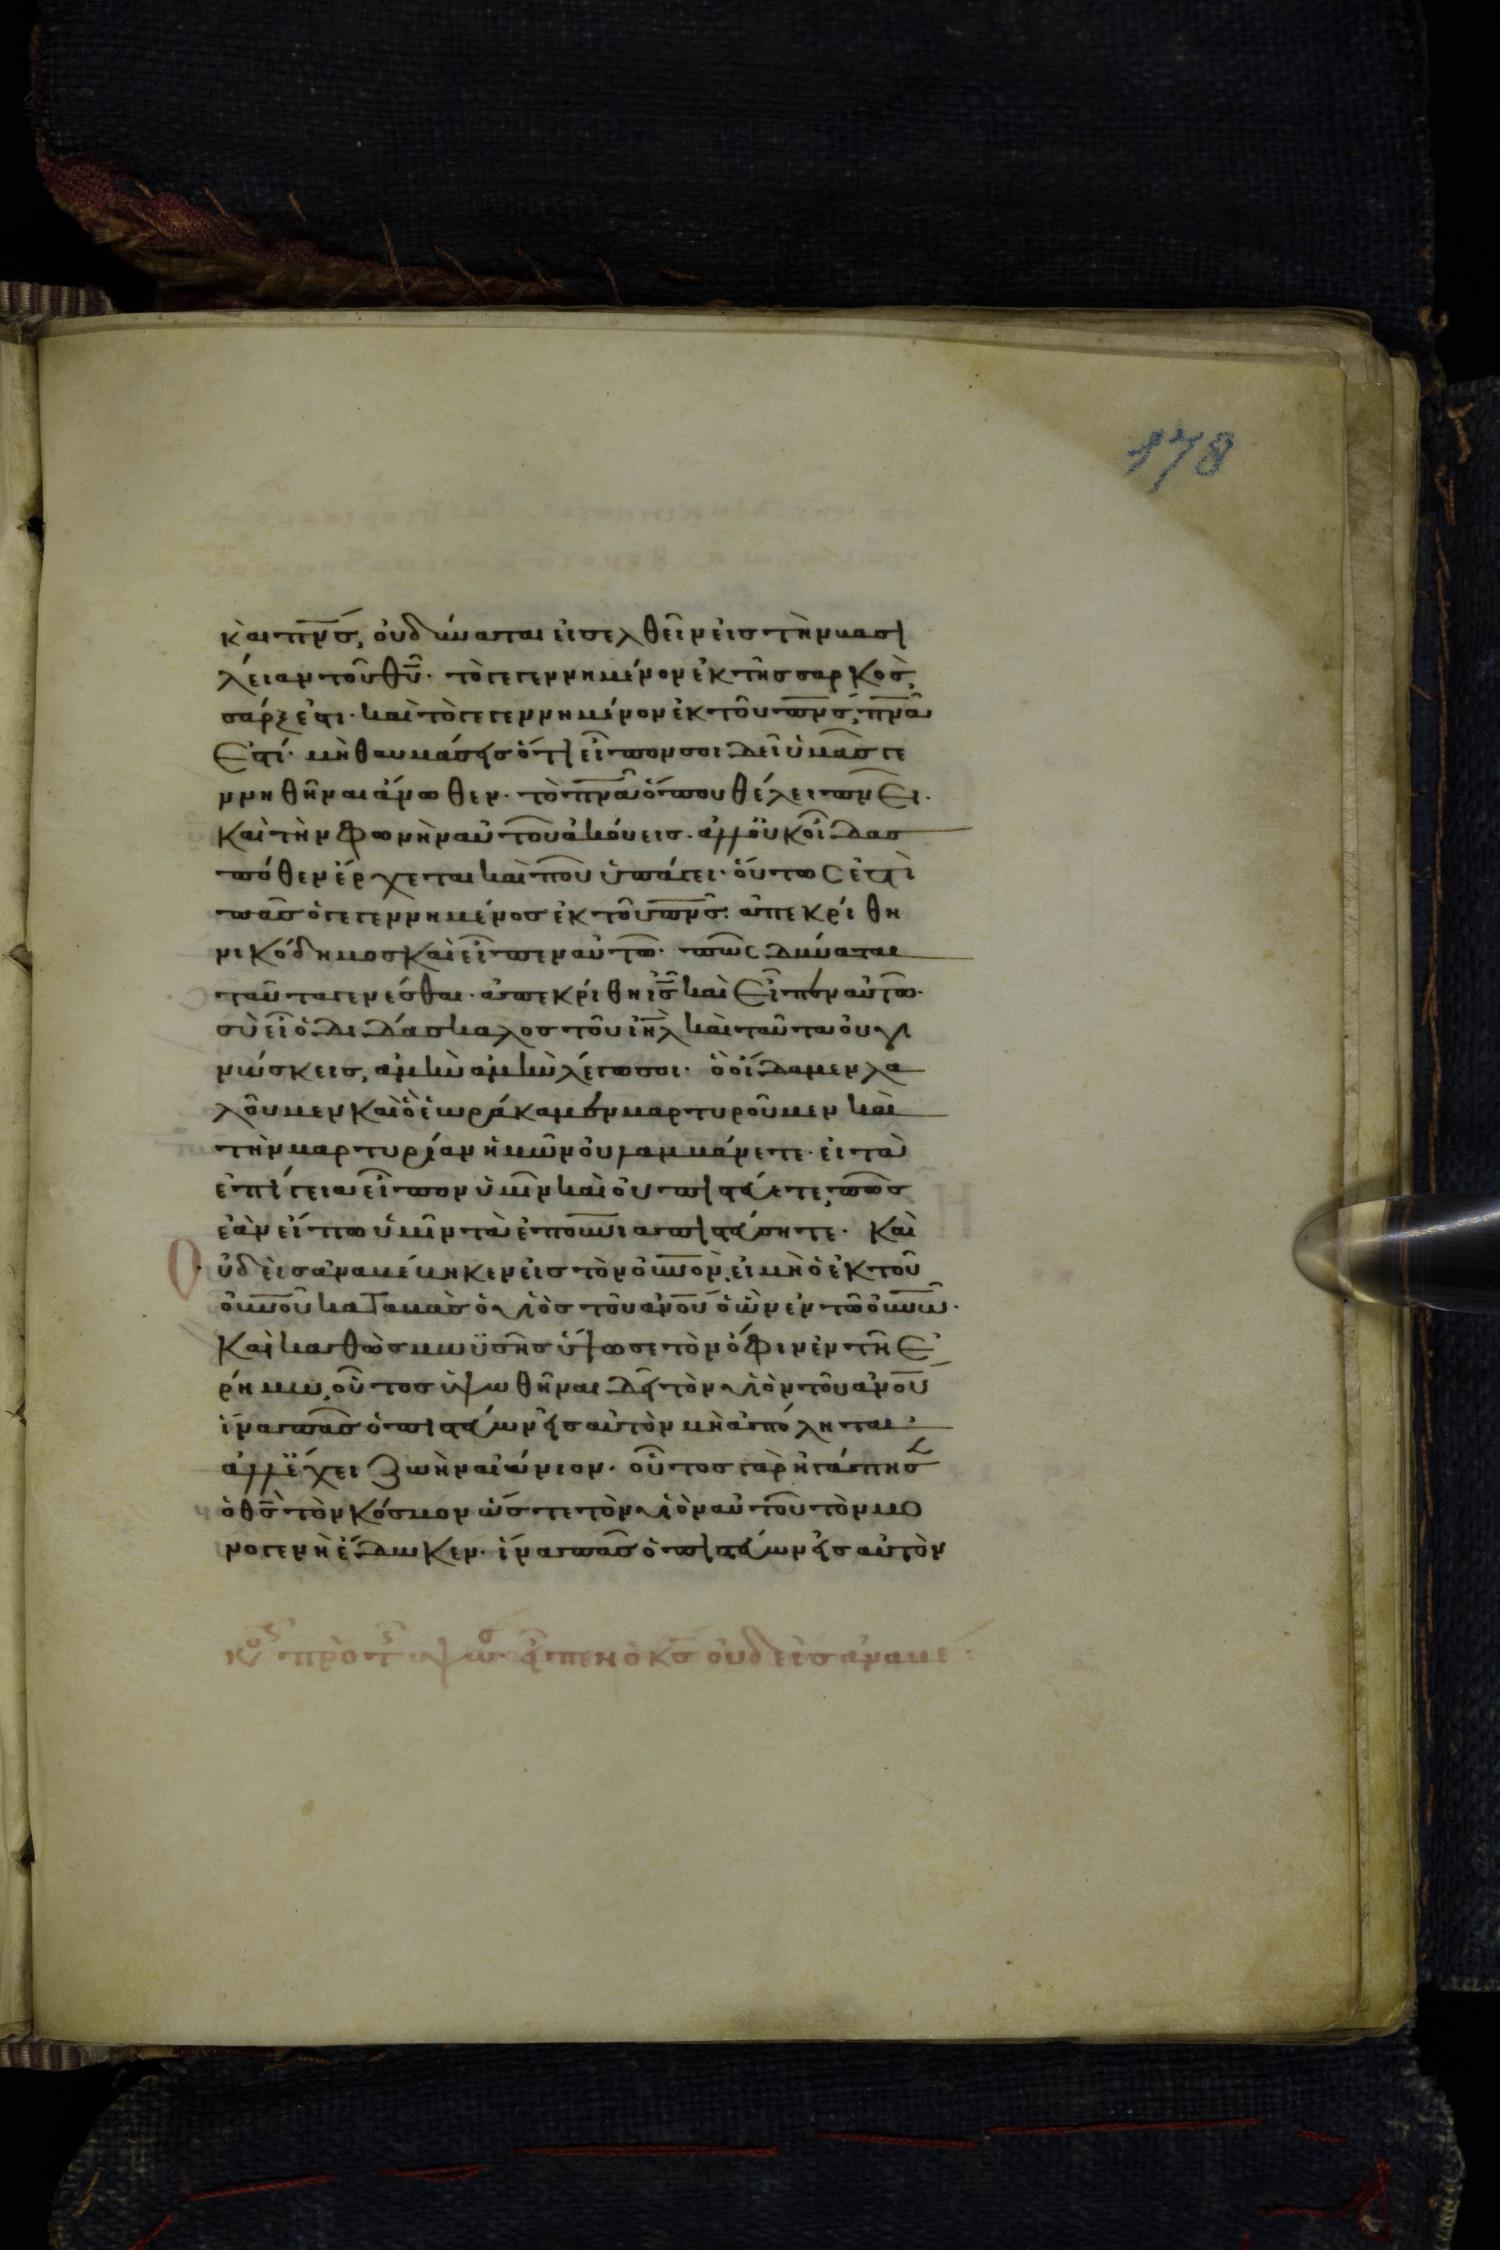 178
καὶ πν̅ς, οὐ δύναται εἰσελθεῖν εἰς τὴν βασι
λείαν τοῦ θυ̅· τὸ γεγεννημένον ἐκ τῆς σαρκὸς,
σάρξ ἐστι· καὶ τὸ γεγεννημένον ἐκ τοῦ πν̅ς, πν̅α
ἐστί· μὴ θαυμάσῃς ὅτι εἶπον σοι δεῖ ὑμᾶς γε
ννηθῆναι ἄνωθεν· τὸ πν̅α ὅπου θέλει πνεῖ·
καὶ τὴν φωνὴν αὐτοῦ ἀκούεις· ἀλλ' οὐκ οἶδας
πόθεν ἔρχεται καὶ ποῦ ὑπάγει· οὕτως ἐστὶ
πᾶς ὁ γεγεννημένος ἐκ τοῦ πν̅ς· ἀπεκρίθη
νικόδημος καὶ εἶπεν αὐτῶ· πῶς δύναται
ταῦτα γενέσθαι· ἀπεκρίθη ις̅ καὶ εἶπεν αὐτῶ·
σὺ εἶ ὁ διδάσκαλος τοῦ ιη̅λ καὶ ταῦτα οὐ γι
νώσκεις, ἀμὴν ἀμὴν λέγω σοι· ὃ οἴδαμεν λα
λοῦμεν καὶ ὃ ἑωράκαμεν μαρτυροῦμεν καὶ
τὴν μαρτυρίαν ἡμῶν οὐ λαμβάνετε· εἰ τὰ
ἐπίγεια εἶπον ὑμῖν καὶ οὐ πιστεύετε, πῶς
ἐὰν εἴπω ὑμῖν τὰ ἐπουνια πιστεύσητε· Καὶ
οὐδεὶς ἀναβέβηκεν εἰς τὸν οὐνον, εἰ μὴ ὁ ἐκ τοῦ
οὐνου καταβὰς ὁ υἱὸς τοῦ ἀνου ὁ ὢν ἐν τῶ οὐνω·
Καὶ καθὼς μωϋσῆς ὕψωσε τὸν ὄφιν ἐν τῆ ἐ
ρήμω, οὕτος ὑψωθῆναι δεῖ τὸν υἱὸν τοῦ ἀνου
ἵνα πᾶς ὁ πιστεύων εἰς αὐτὸν μὴ ἀπόληται·
ἀλλ' ἔχει ζωὴν αἰώνιον· οὕτος γὰρ ἠγάπησε
ὁ θς̅ τὸν κόσμον ὥστε τὸν υἱὸν αὐτοῦ τὸν μο
νογενῆ ἔδωκεν· ἵνα πᾶς ὁ πιστεύων εἰς αὐτὸν
πρὸ τ ὑψω· εἶπεν ὁ κς̅ οὐδεὶς ἀναβέ·